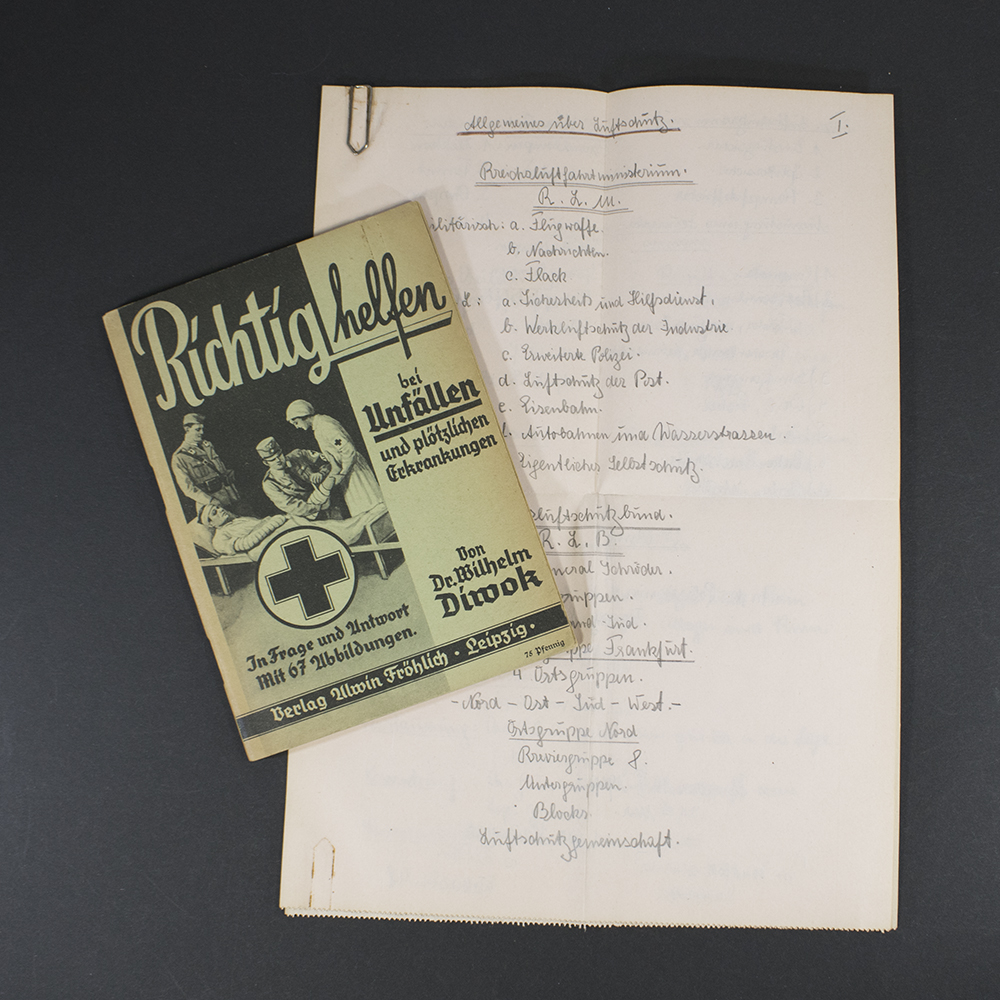 Richtig helfen
bei
Unfällen
und plötzlichen
Erkrankungen
Von
Dr. Wilhelm
Diwok
In Frage und Antwort
Mit 67 Abbildungen.
Verlag Alwin Fröhlich • Leipzig •
75 Pfennig
I.
Allgemeines über Luftschutz.
Reichsluftfahrtministerium.
R. L. M.
militärisch: a. Flugwaffe.
b. Nachrichten.
c. Flack
a. Sicherheits und Hilfsdienst.
b. Werkluftschutz der Industrie.
c. Erweiterte Polizei.
d. Luftschutz der Post.
e. Eisenbahn.
Autobahnen und Wasserstrassen.
Eigentlicher Selbstschutz.
luftschutzbund.
R. L. B.
neral Schröder.
gruppen.
nd - Süd.
gruppe Frankfurt.
4 Ortsgruppen.
- Nord - Ost - Süd - West. -
Ortsgruppe Nord
Reviergruppe 8.
Untergruppen.
Blocks.
Luftschutzgemeinschaft.